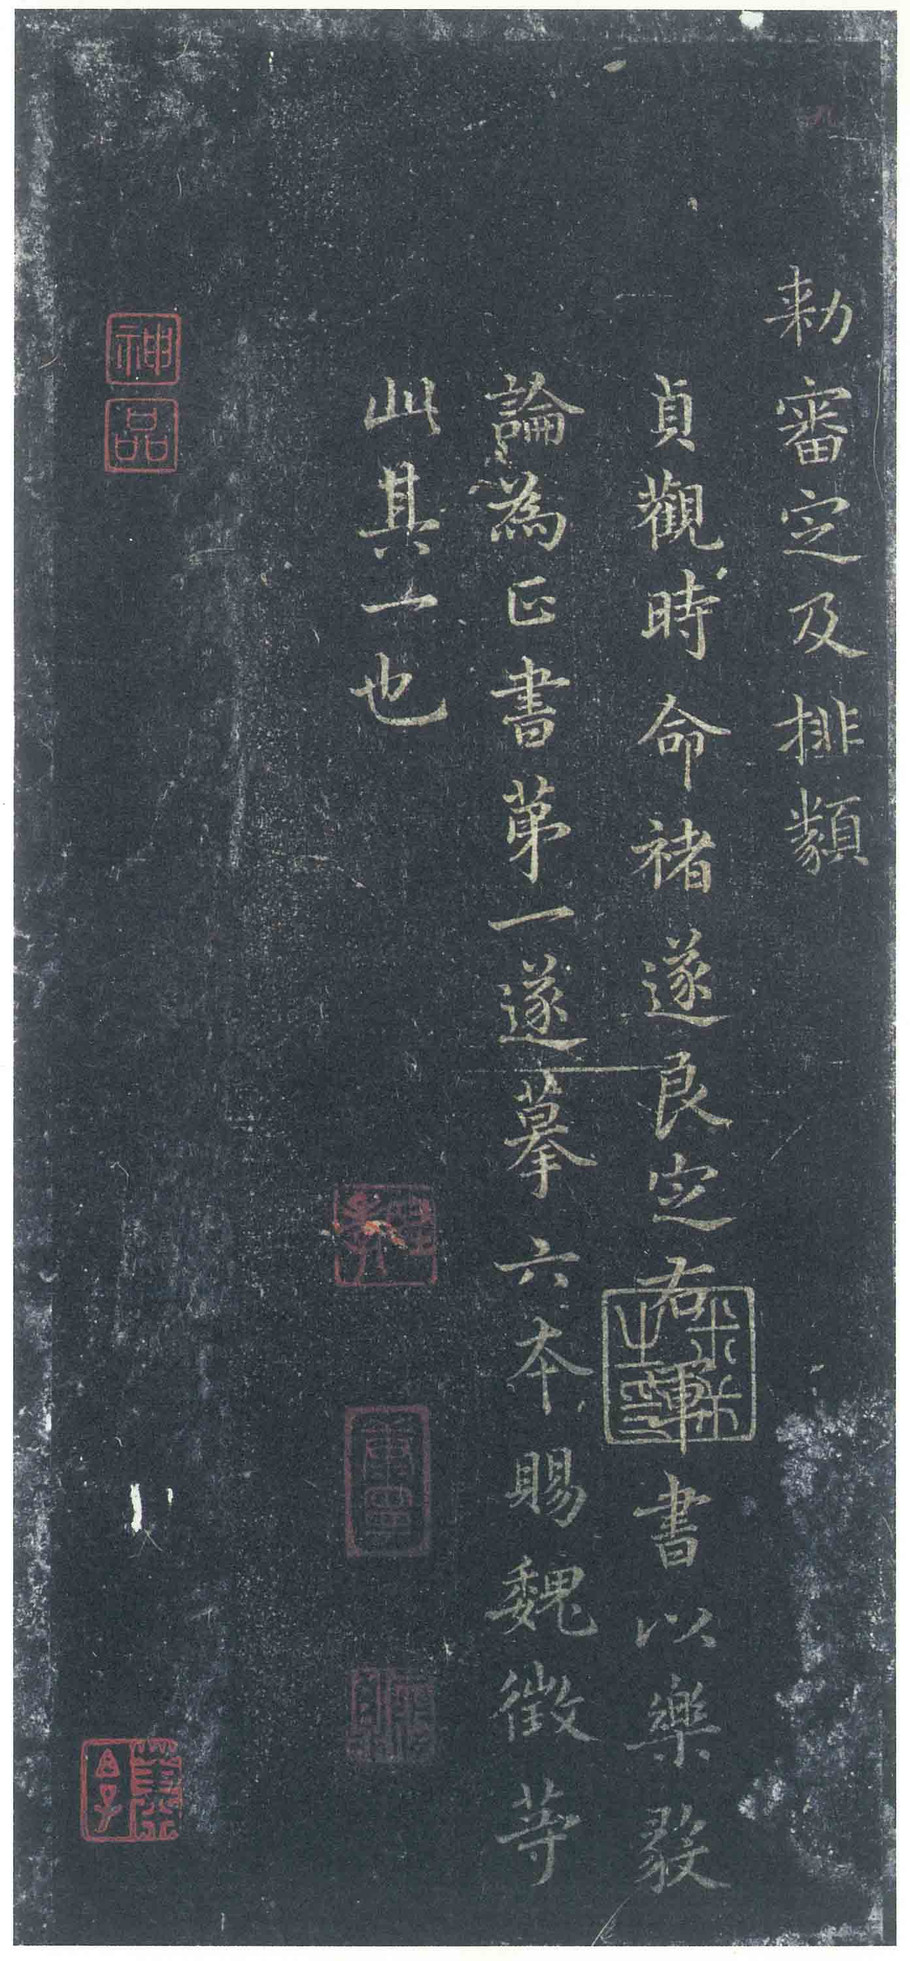 勑審定及排類
貞觀時命褚遂良定右軍書以樂毅
論為正書第一遂摹六本賜魏徵等
此其一也
神
品